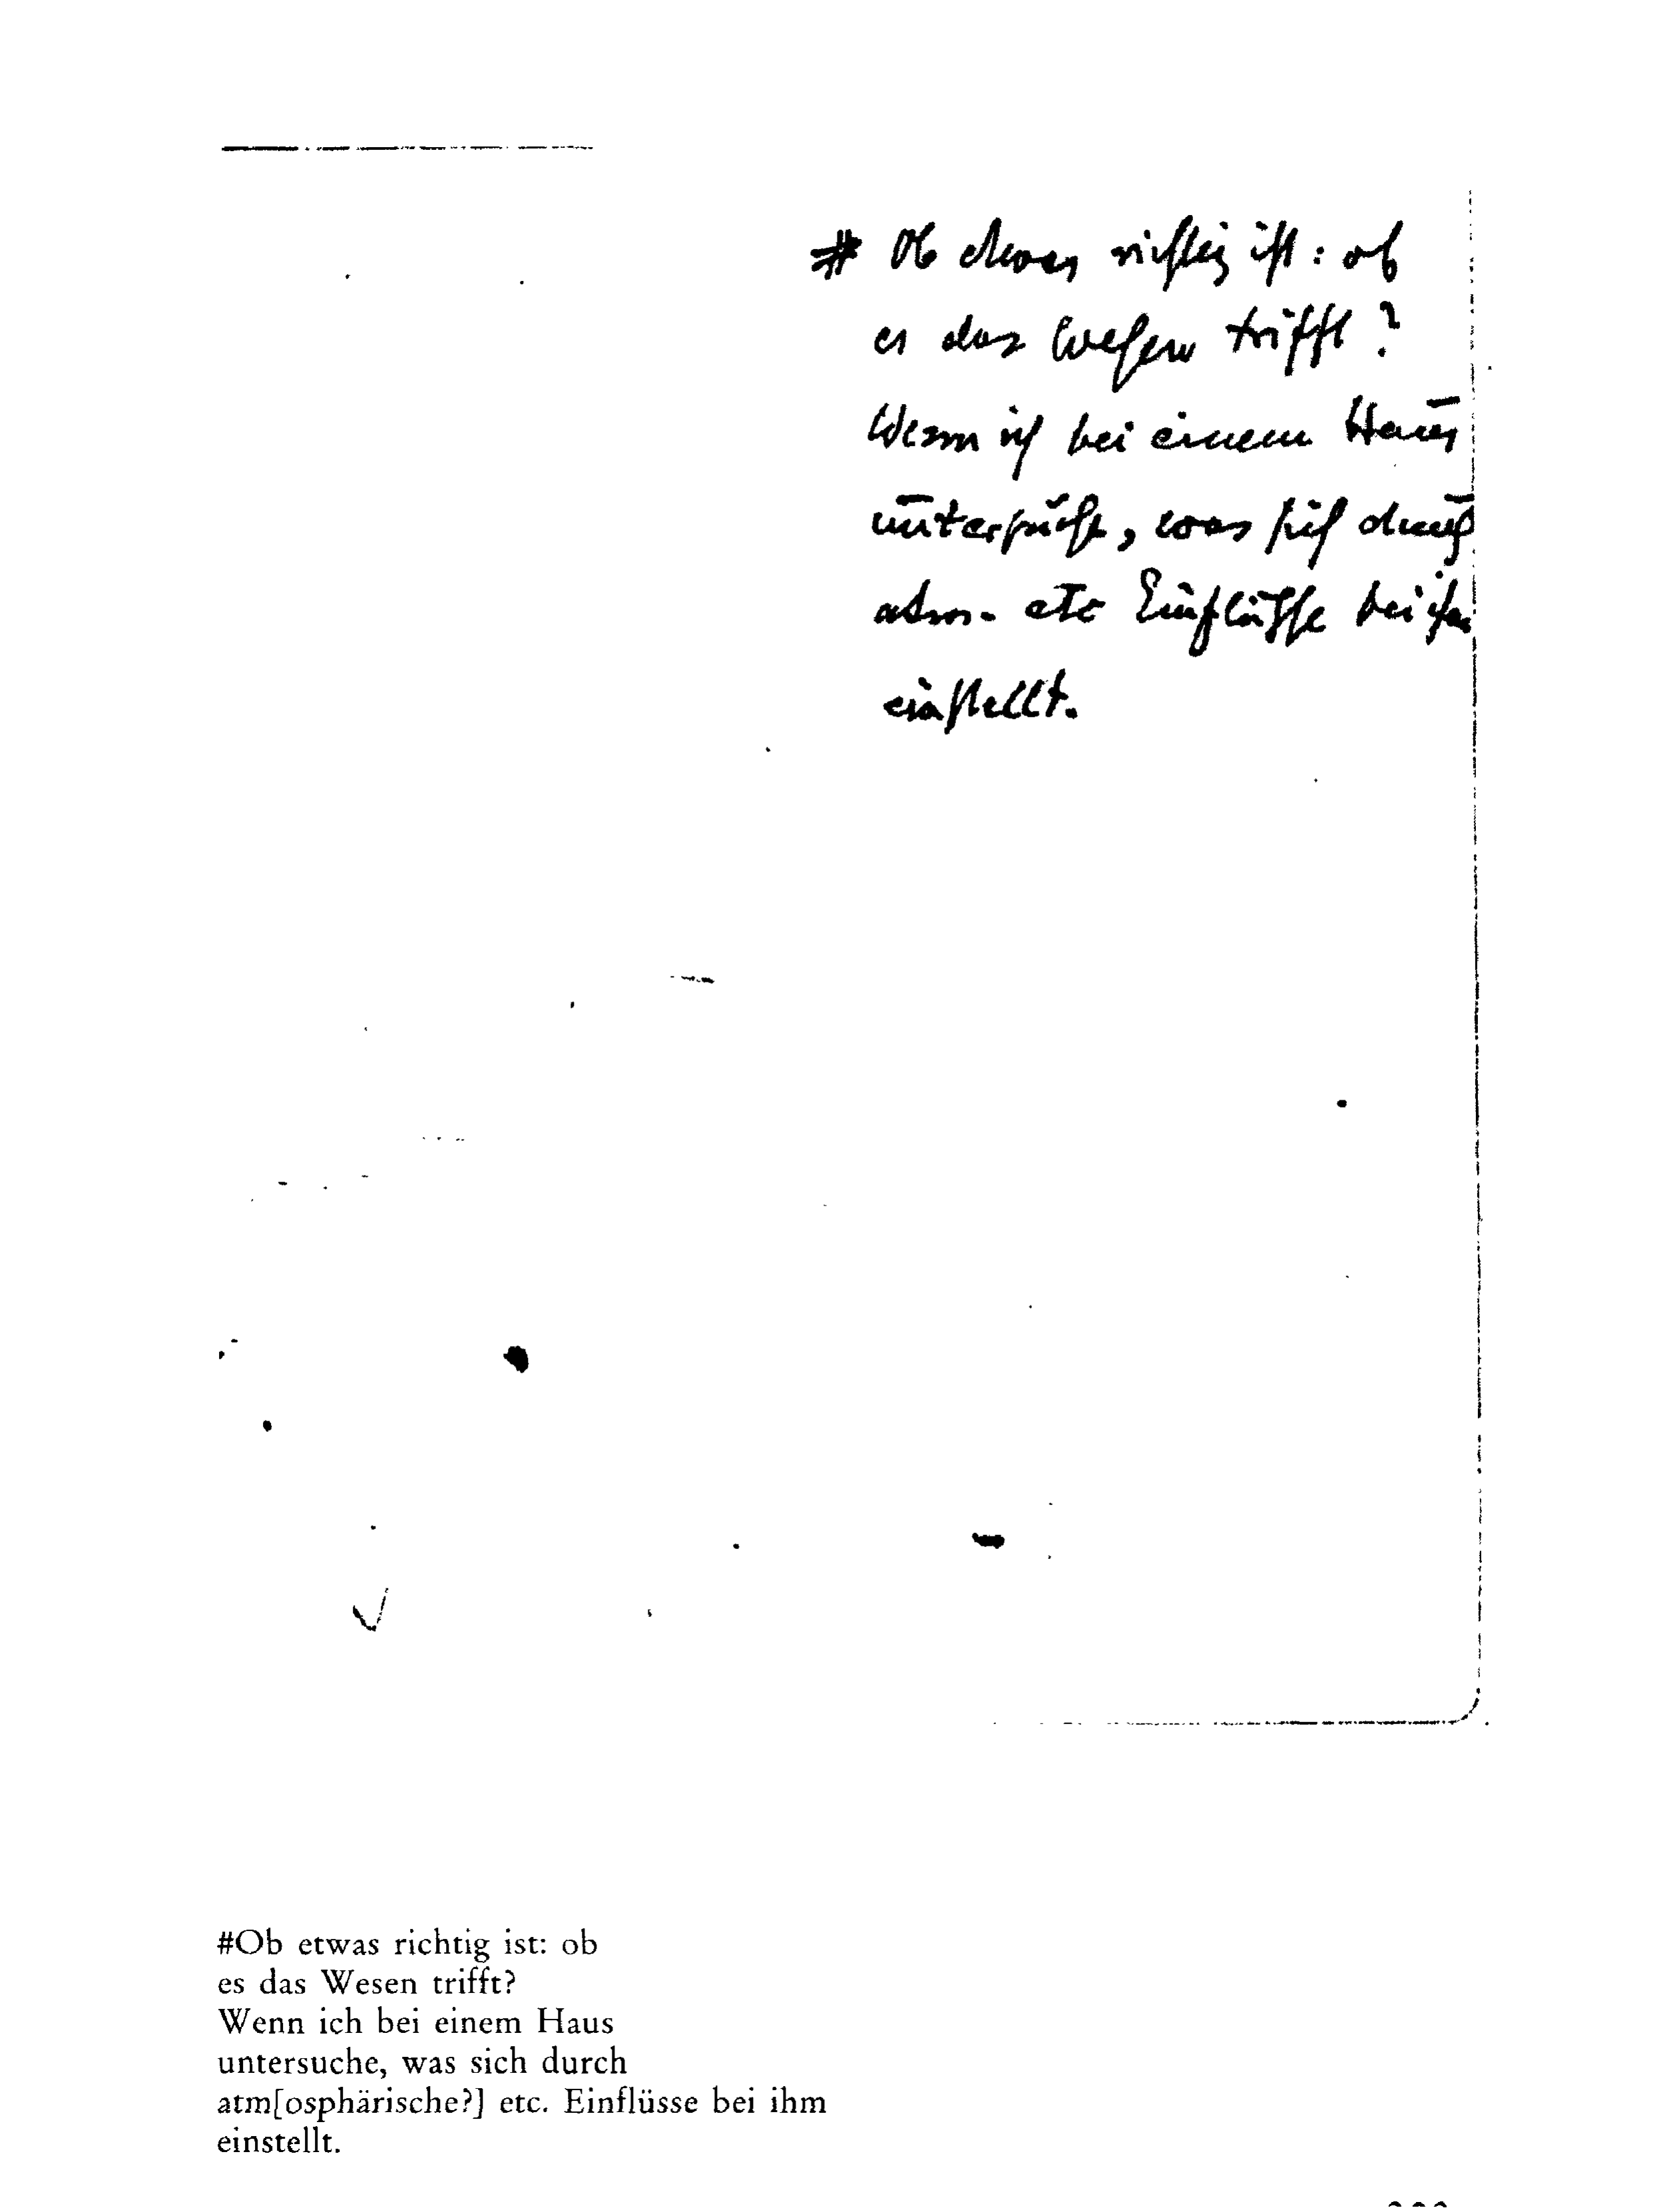 # Ob etwas richtig ist: ob
es das Wesen trifft?
Wenn ich bei einem Haus
untersuche, was sich durch
atm. etc Einflüsse bei ihm
einstellt.
#Ob etwas richtig ist: ob
es das Wesen trifft?
Wenn ich bei einem Haus
untersuche, was sich durch
atm[osphärische?] etc. Einflüsse bei ihm
einstellt.